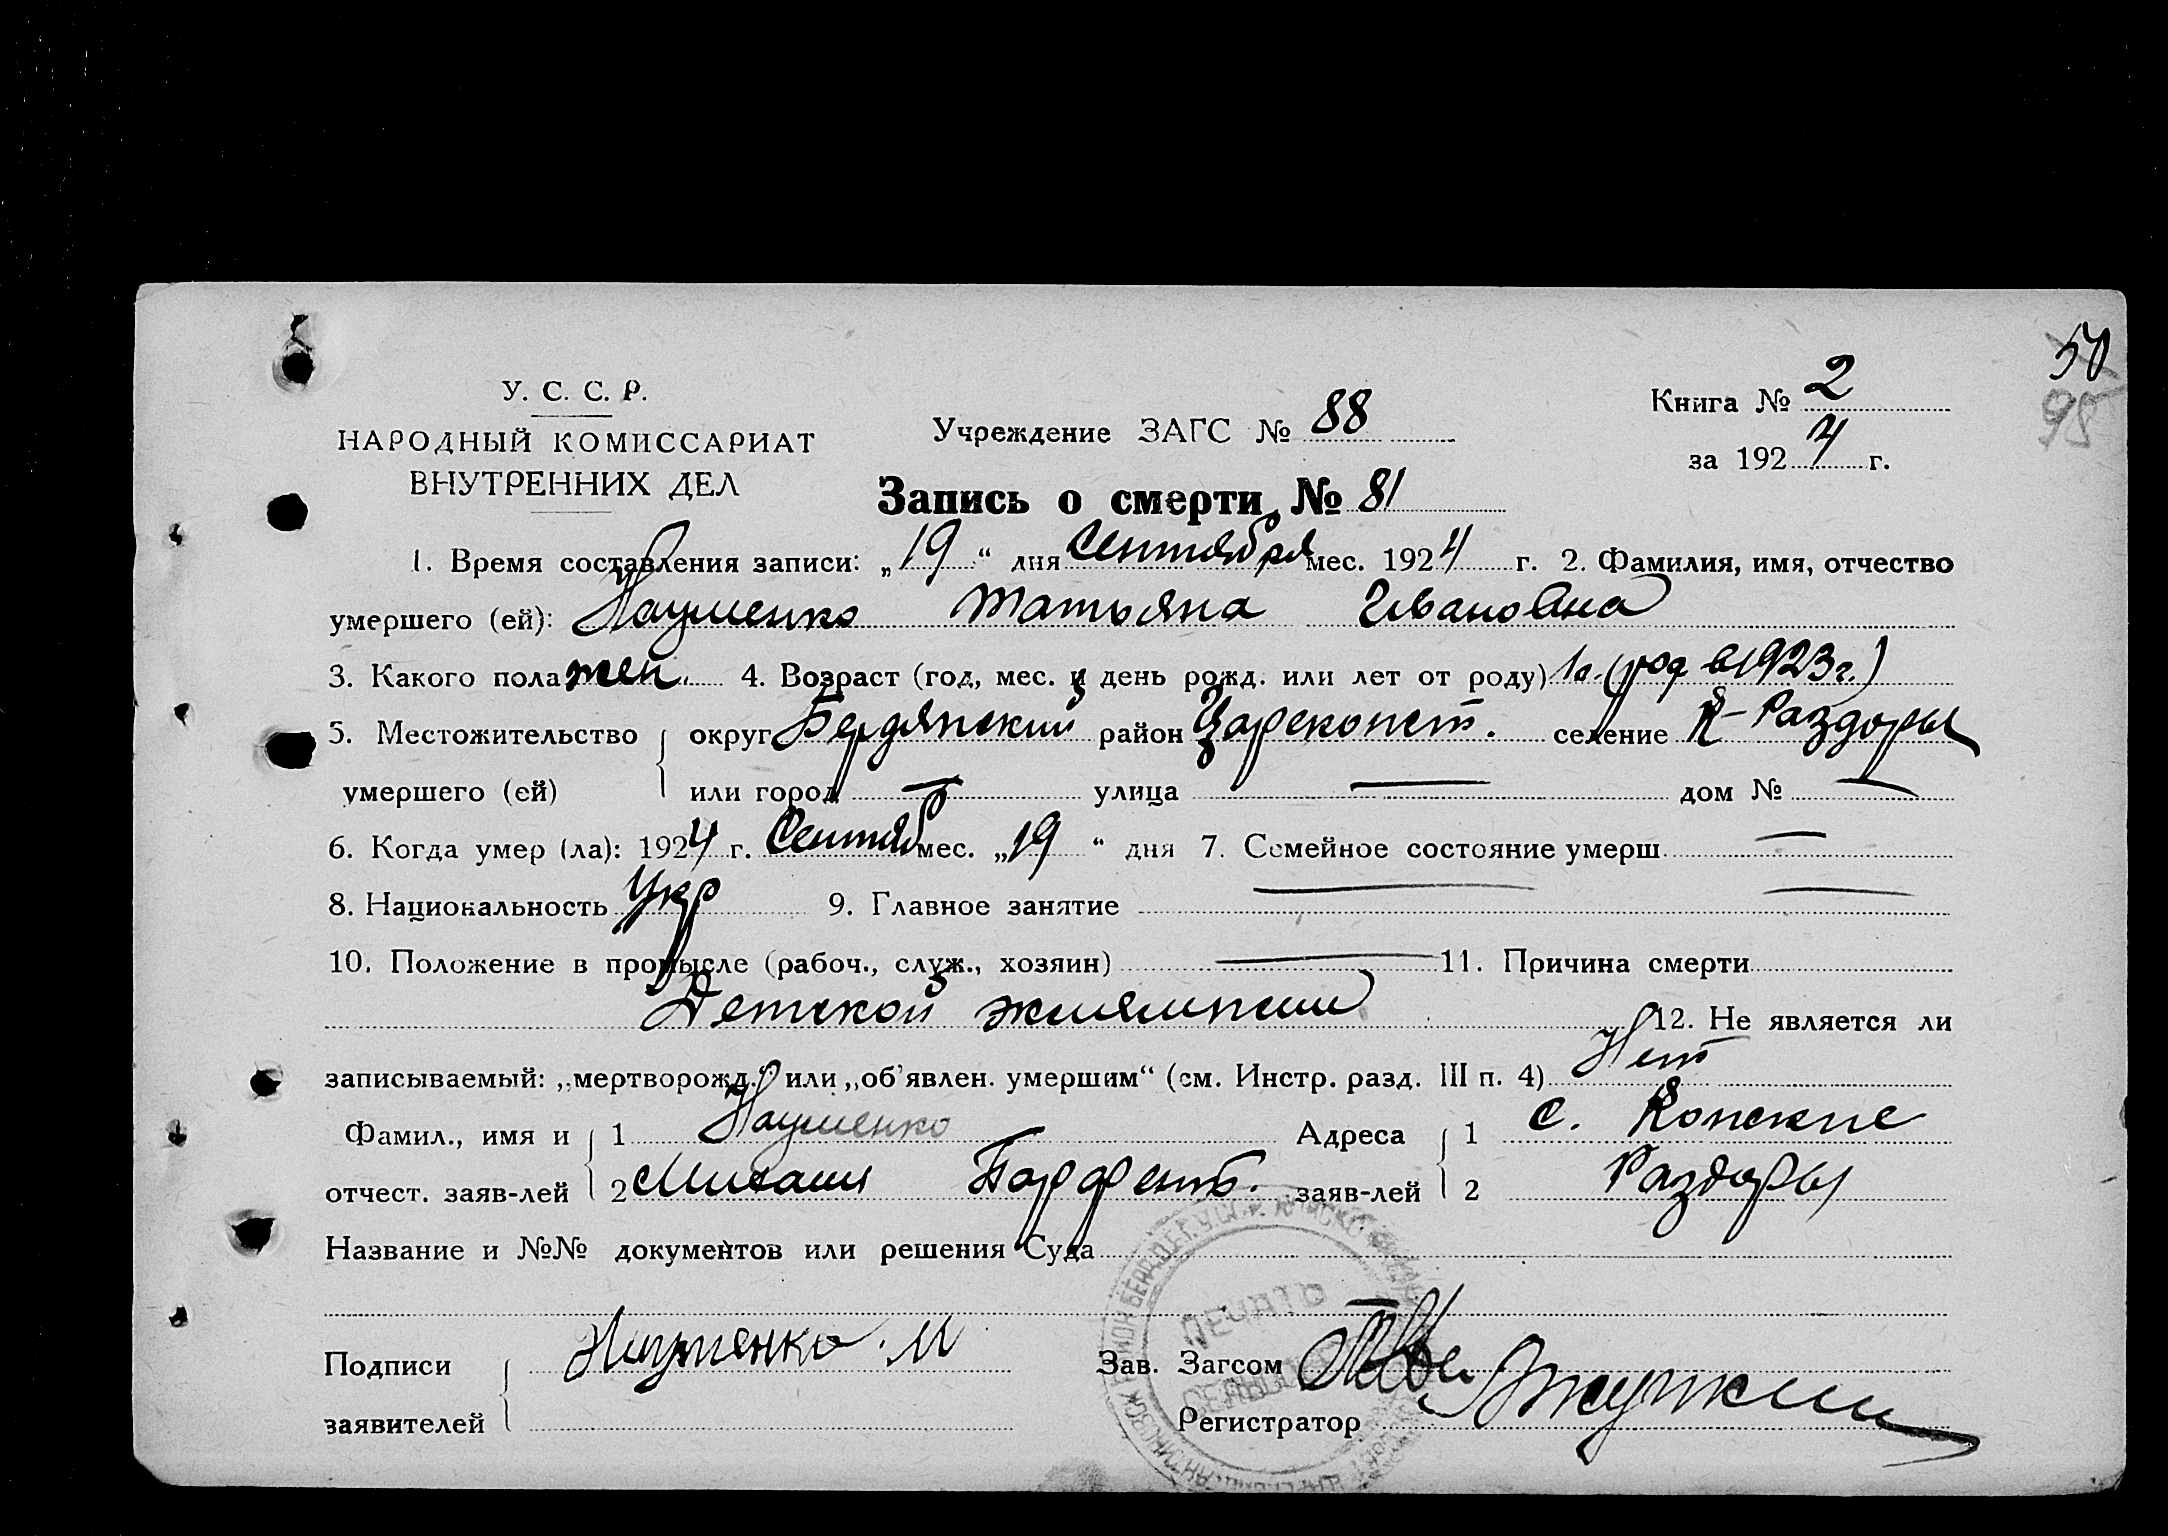 50
98
У. С. С. Р.
НАРОДНЫЙ КОМИССАРИАТ
ВНУТРЕННИХ ДЕЛ
Учреждение ЗАГС № 88
Книга № 2
за 1924 г.
Запись о смерти № 81
1. Время составления записи: „19“ дня Сентября мес. 1924 г. 2. Фамилия, имя, отчество
умершего (ей): Науменко Татьяна Ивановна
3. Какого пола жен. 4. Возраст (год, мес. и день рожд. или лет от роду) 1 г. (род в 1923 г.)
5. Местожительство округ Бердянский район Цареконст. селение К-Раздоры
умершего (ей) или город — улица — дом № —
6. Когда умер (ла): 1924 г. Сентяб мес. „19“ дня 7. Семейное состояние умерш. —
8. Национальность Укр 9. Главное занятие —
10. Положение в промысле (рабоч., служ., хозяин) — 11. Причина смерти
Детской эклямпсии 12. Не является ли
записываемый: „мертворожд.“ или „об’явлен. умершим“ (см. Инстр. разд. III п. 4) Нет
Фамил., имя и 1 Науменко Адреса 1 с. Конские
отчест. заяв-лей 2 Михаил Парфент. заяв-лей 2 Раздоры
Название и №№ документов или решения Суда
Подписи Науменко. М Зав. Загсом
заявителей Регистратор
ПЕЧАТЬ